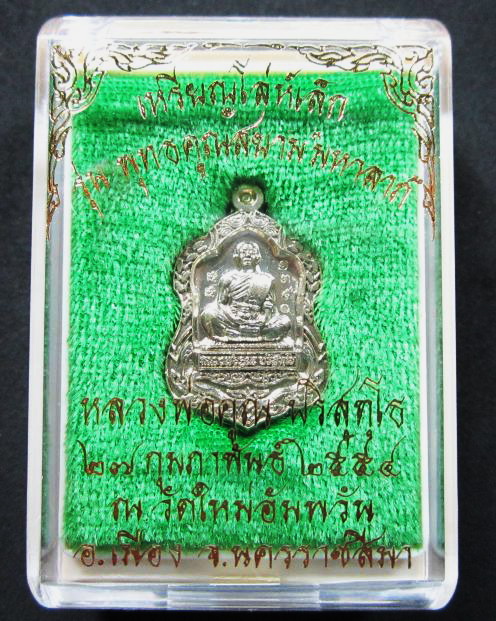 เหรียญโล่ห์เล็ก
รุ่น พุทธคูณสยามมหาลาภ
หลวงพ่อคูณ ปริสุทฺโธ
๒๗ กุมภาพันธ์ ๒๕๕๔
ณ วัดใหม่อัมพวัน
อ.เมือง จ.นครราชสีมา